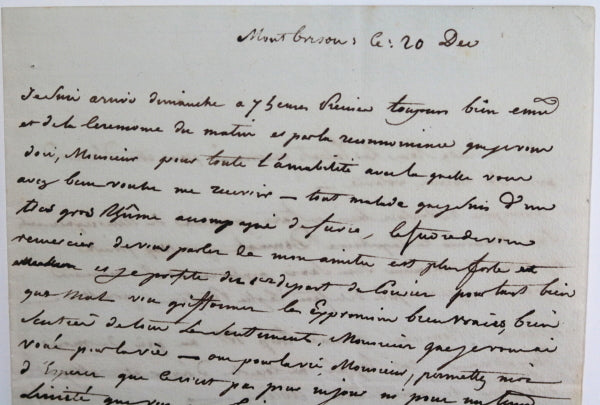 Montbrison, ce: 20 Dec
Je suis arrivé dimanche a 7 heures Precise toujours bien emu
et de la Ceremonie du matin et par la reconnoissance que je vous
doi, Monsieur pour toute l'amabilité avec la quelle vous
avez bien voulu me recevoir – tout malade que je suis d'un
tres gros Rhûme accompagné de fievre, le de vous
remercier de vous parler de mon amitie est plus forte et
et je profite du depart de Courier pour tant bien
que mal vous Expression bien vraies, bien
de tous les Sentiments, Monsieur que je vous ai
voué pour la vie – oui pour la vie Monsieur, permettez moi
d'Esperer que ce n'est pas pour un jour ni pour un
que vous